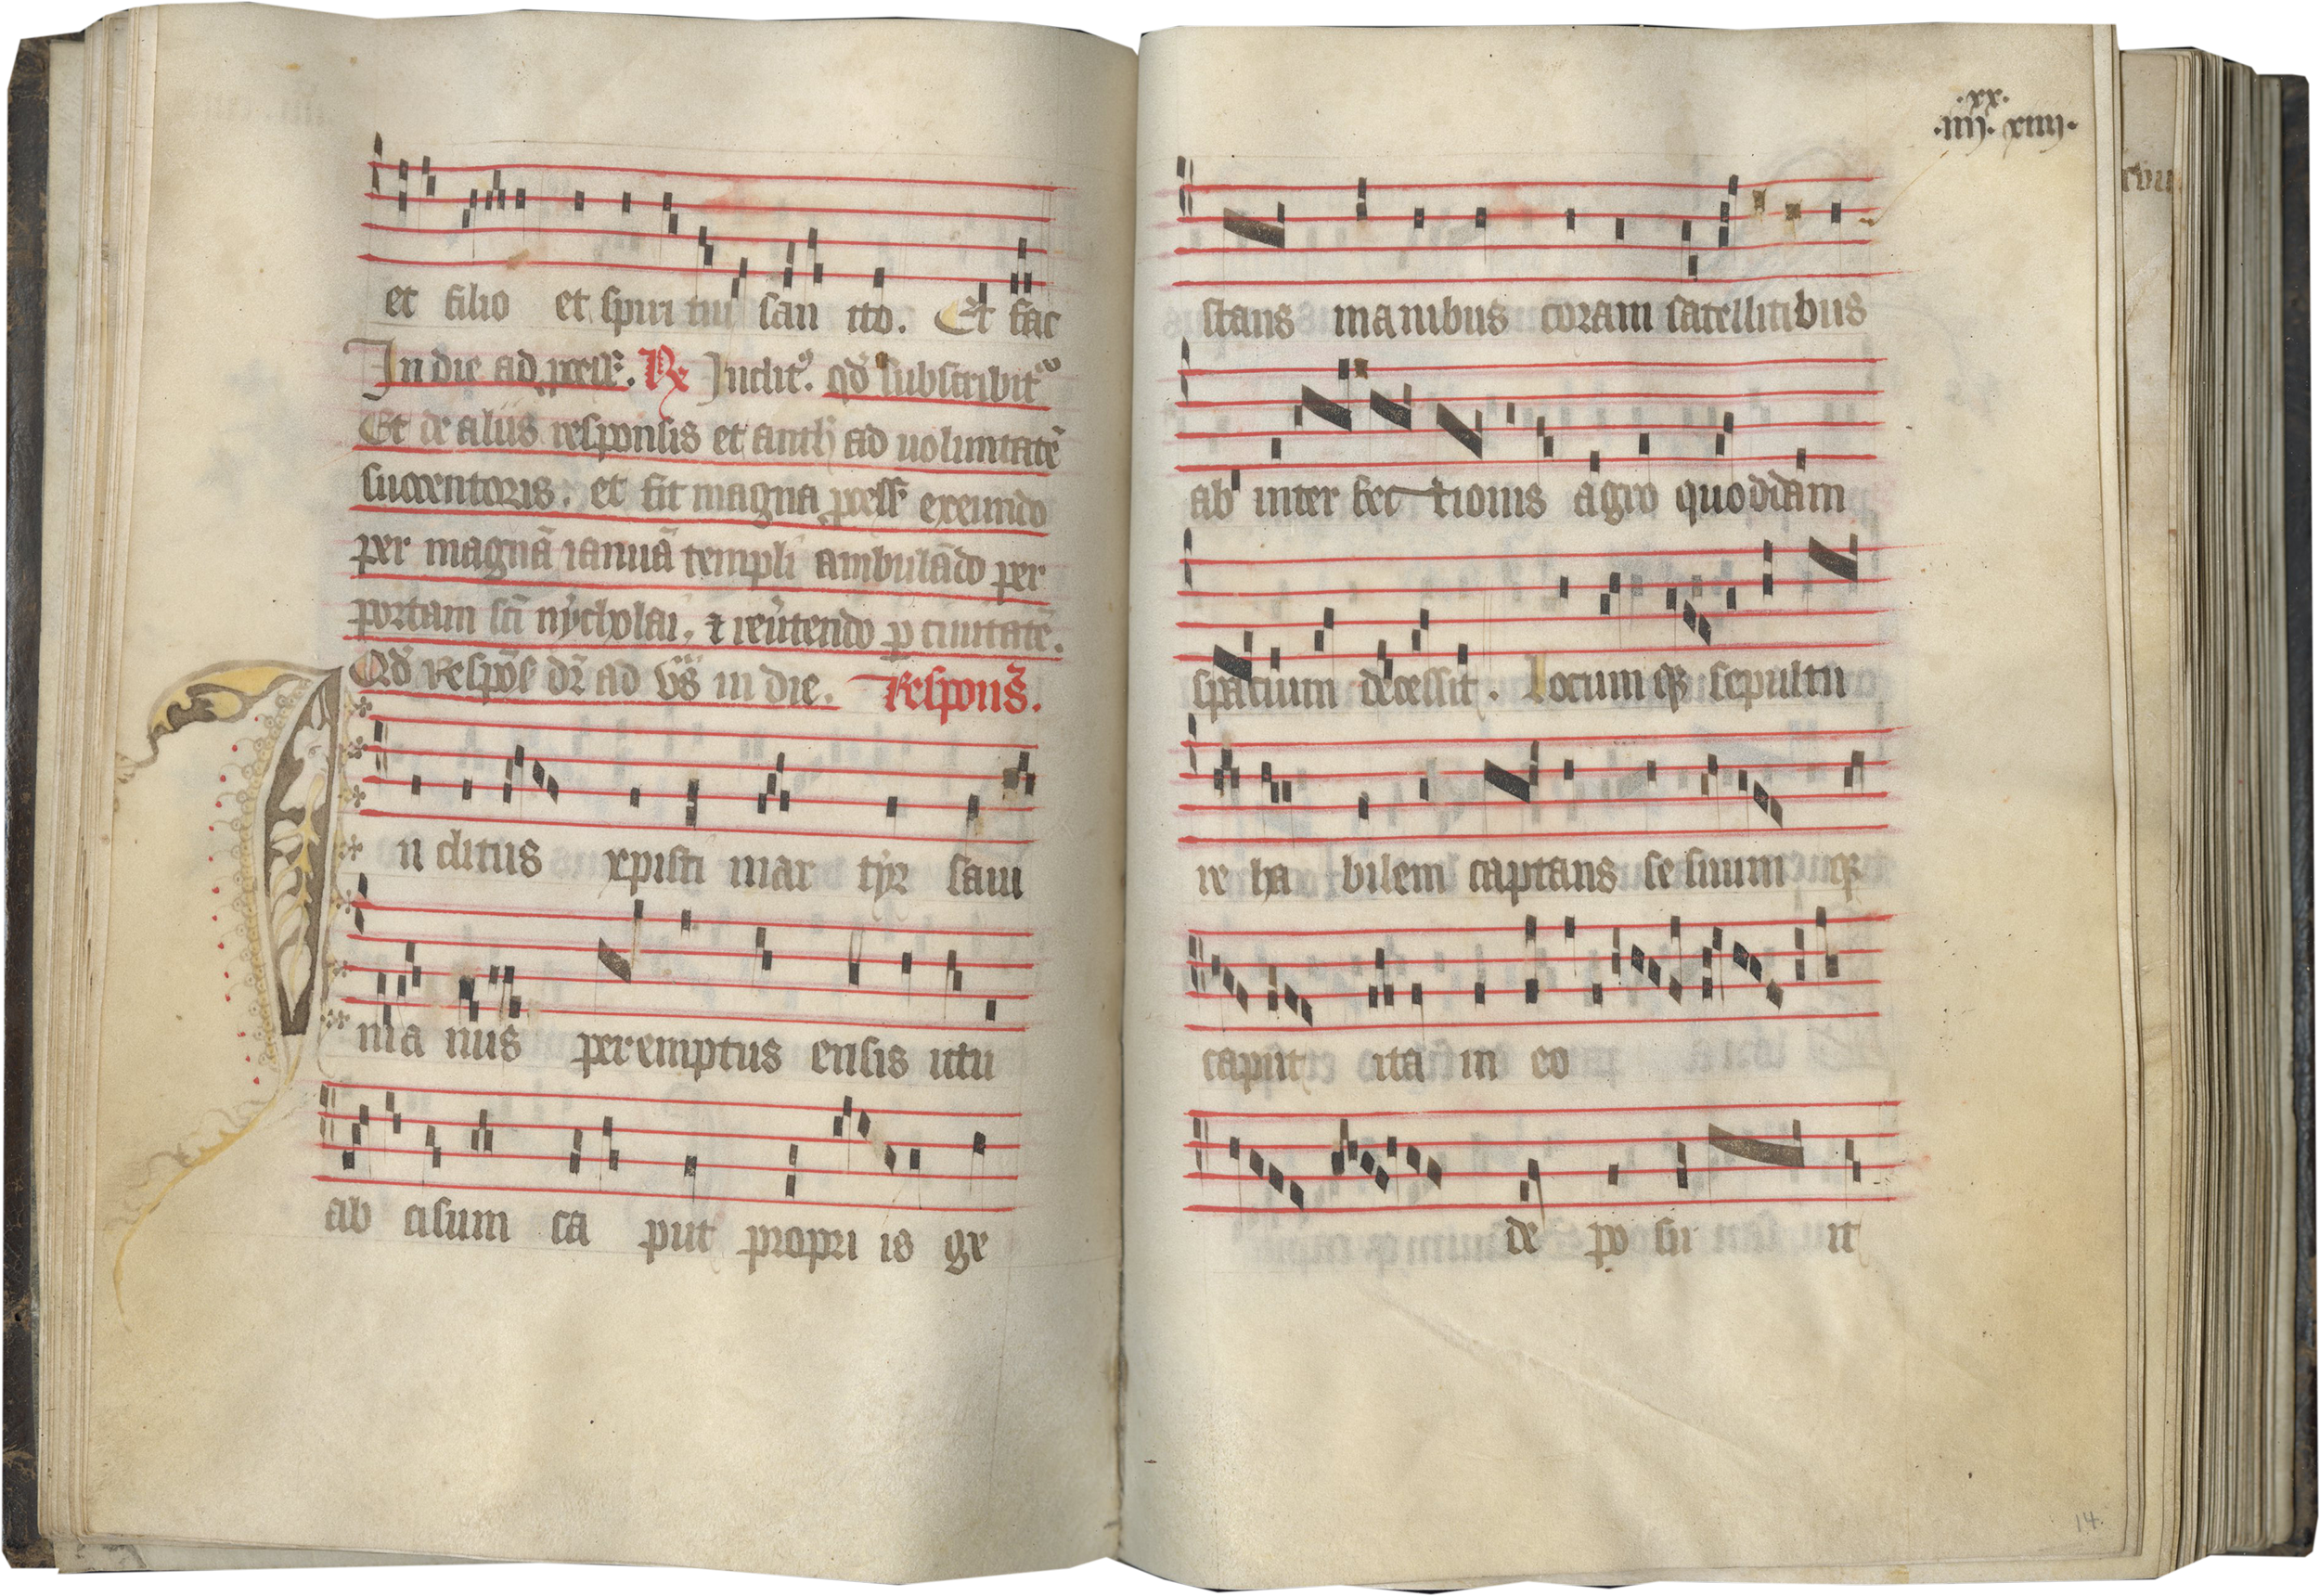 et filio et spiri tui san cto. Et fac
In die ad process. R Inclit9. qd subscribit
Et de aliis responsis et anth ad uoluntatē
succentoris. et fit magna process exeundo
per magnā ianuā templi ambulādo per
portam sci nycholai. et reutendo p ciuitatē.
Qd Respos dr ad Vs in die. Respons.
n clitus xpisti mar tyr saui
nia nus peremptus ensis ictu
ab cisum ca put propri is ge
.xx.
.iiij. xiiij.
stans manibus coram satellitibus
ab inter fec tionis agro quoddam
spatium decessit. Locum qz sepultu
re ha bilem captans se suum qz
caput ita in eo
de po su it
14.